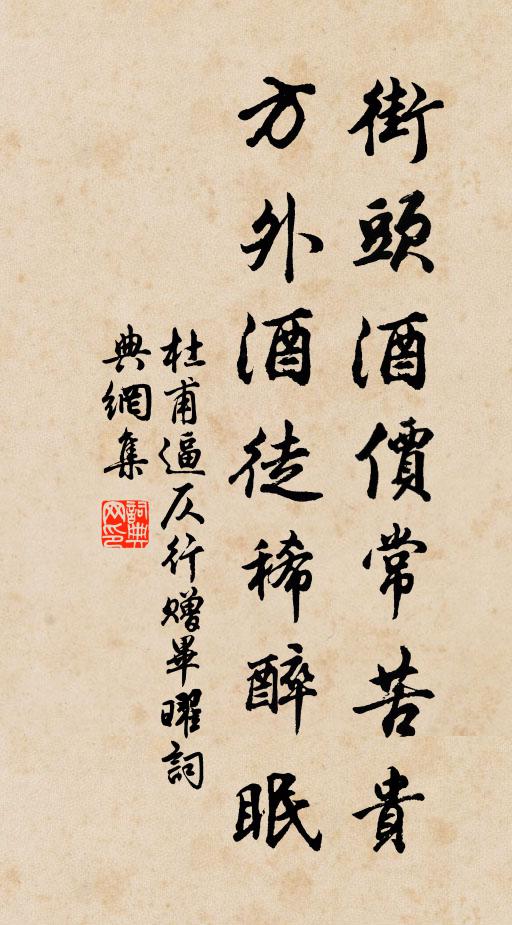 街頭酒價常苦貴
方外酒徒稀醉眠
杜甫逼仄行贈畢曜詞
典網集
詞典
网印